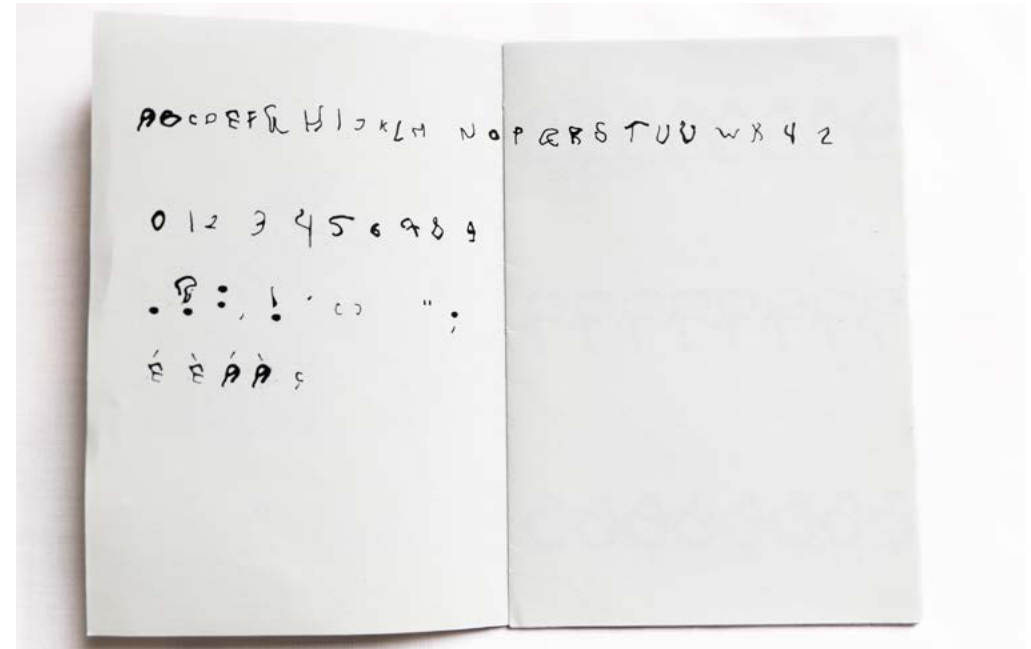 A B C D E F G H I J K L M N O P Q R S T U V W X Y Z
0 1 2 3 4 5 6 7 8 9
. ? : , ! ' ( ) " ;
É È Á À ç